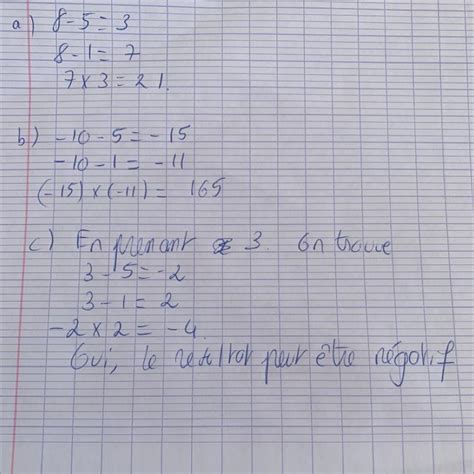 a) 8-5=3
8-1=7
7×3=21.
b) -10-5=-15
-10-1=-11
(-15)×(-11)=165
c) En prenant 3. On trouve
3-5=-2
3-1=2
-2×2=-4.
Oui, le resultat peut être négatif